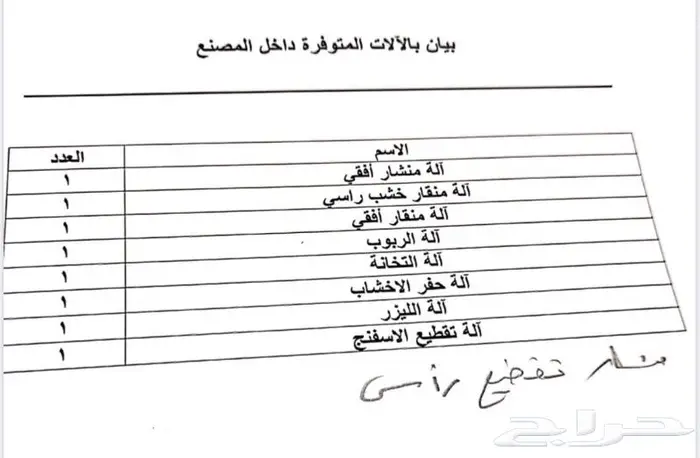 بيان بالآلات المتوفرة داخل المصنع
الاسم العدد
آلة منشار أفقي ١
آلة منقار خشب راسي ١
آلة منقار أفقي ١
آلة الربوب ١
آلة التخانة ١
آلة حفر الاخشاب ١
آلة الليزر ١
آلة تقطيع الاسفنج ١
منشار تقطيع رأسي
حراج